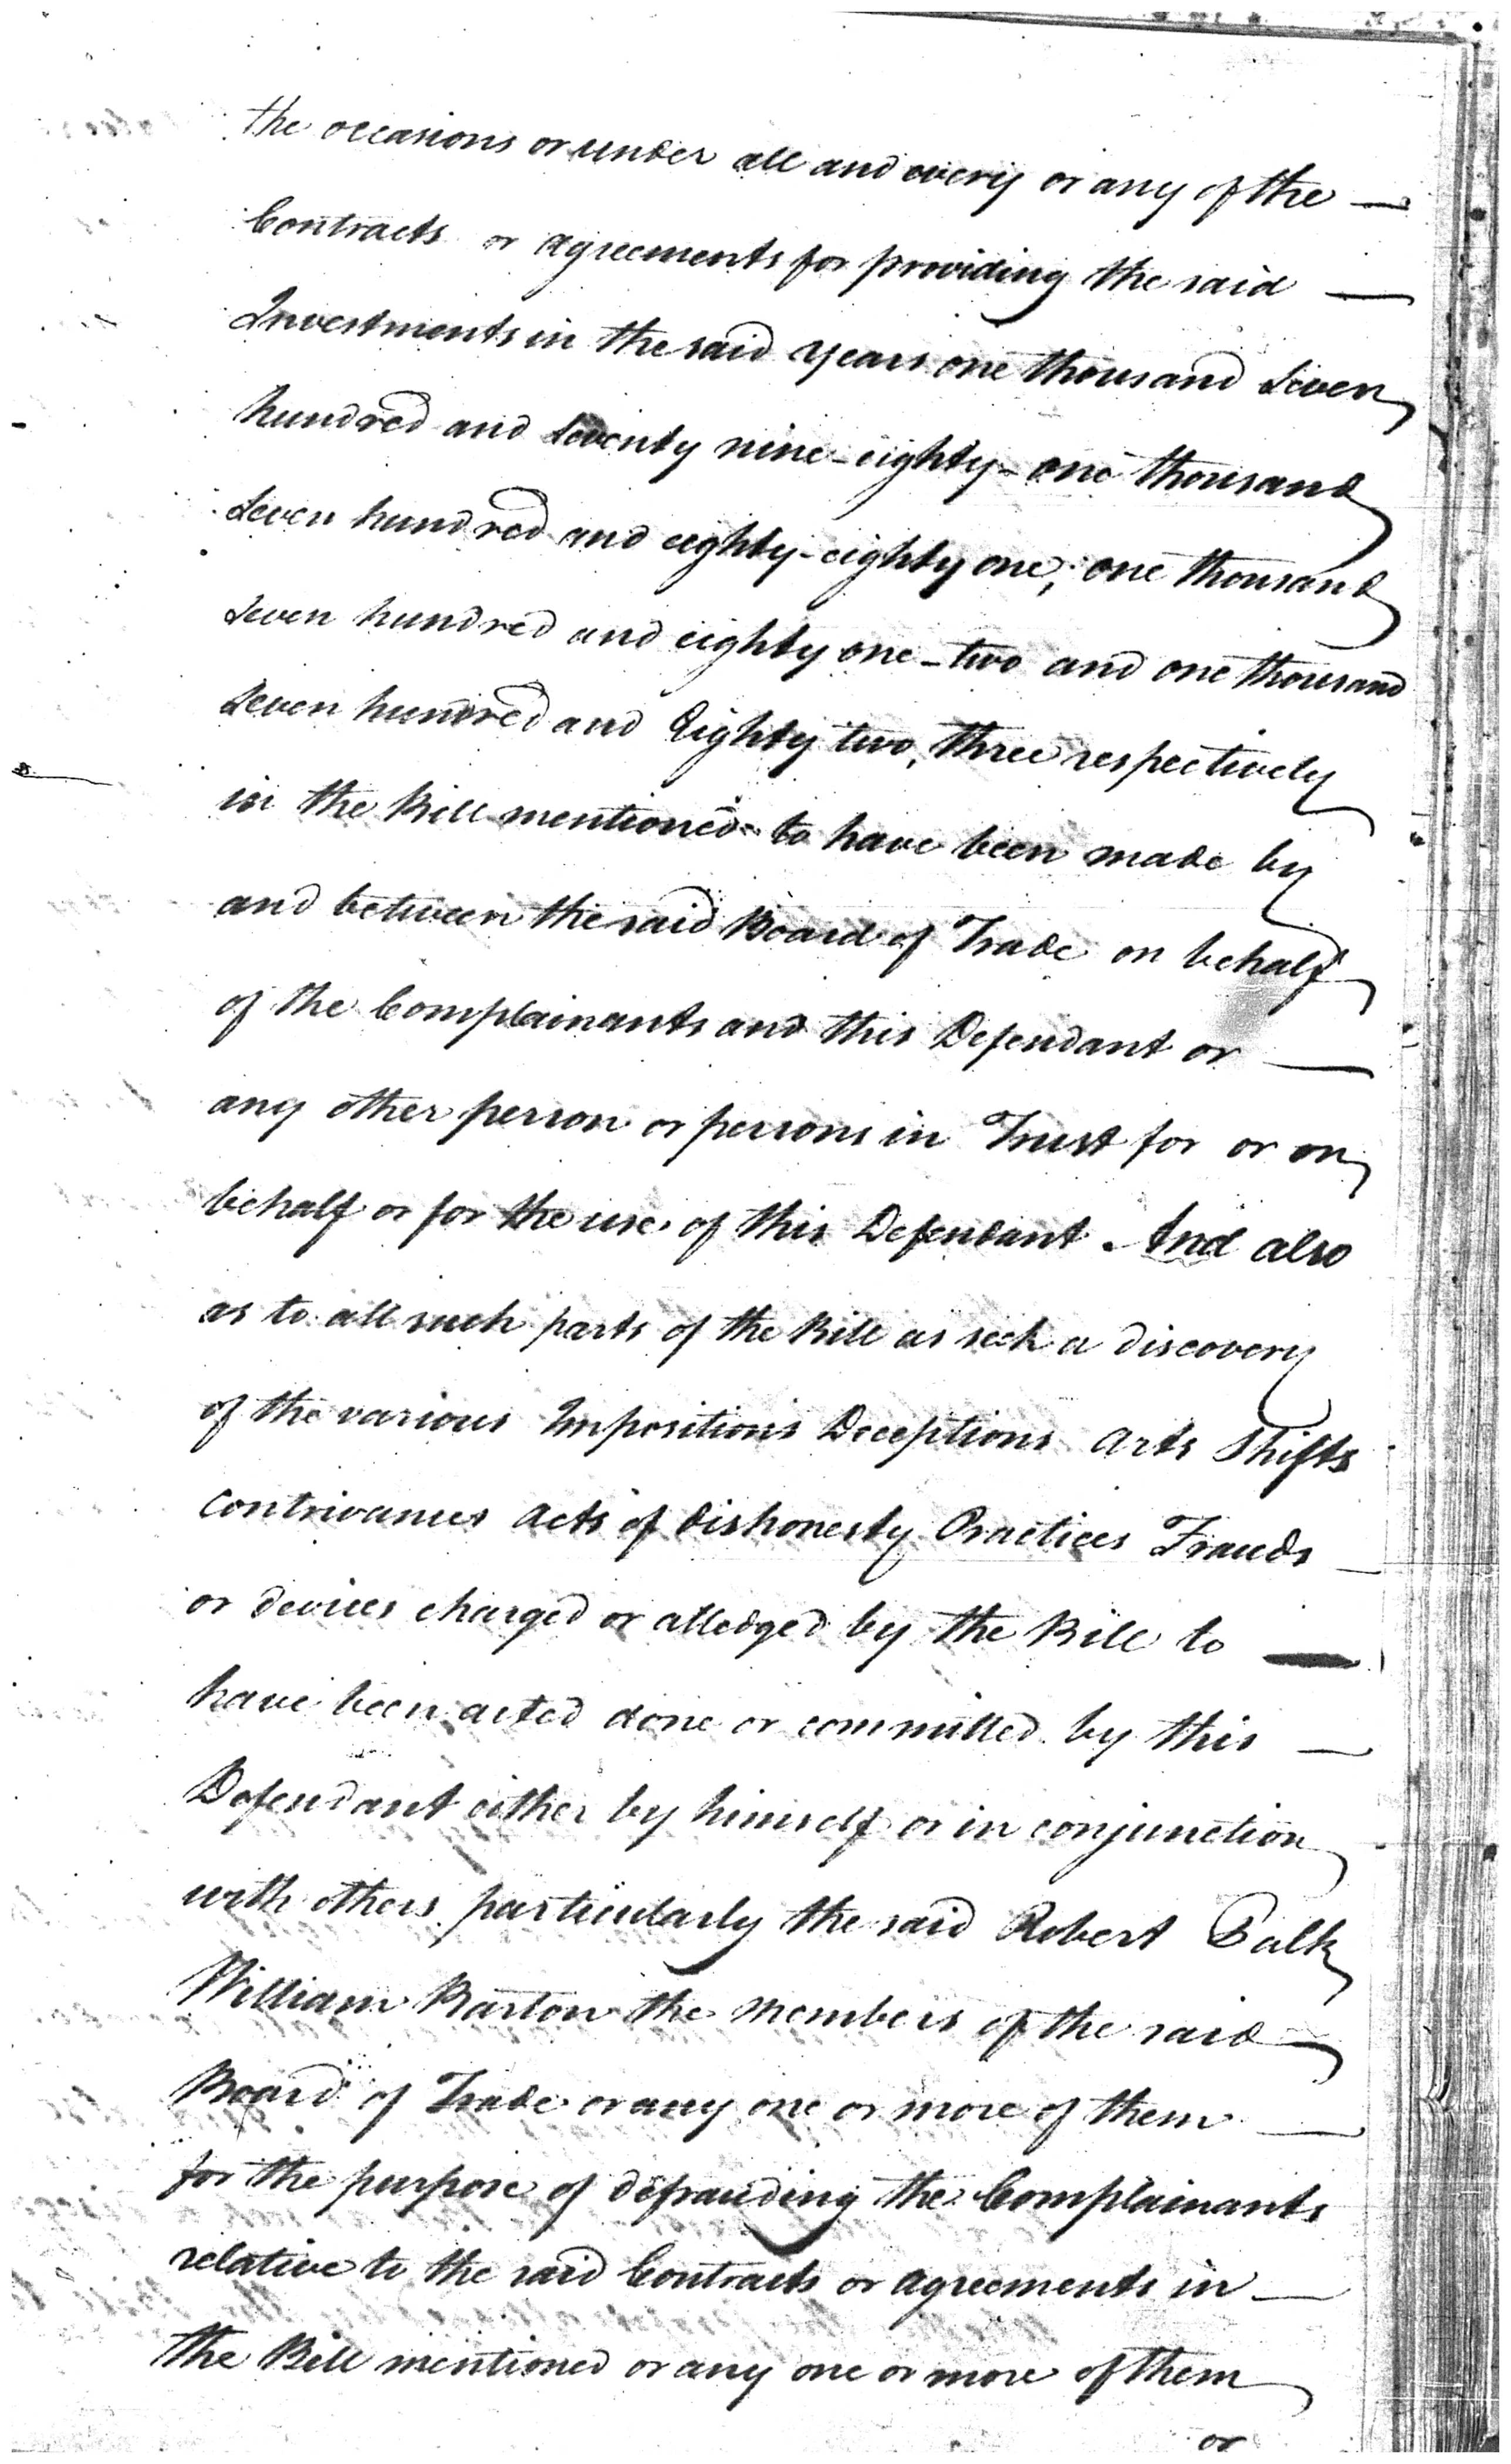 the occasions or under all and every or any of the —
Contracts or agreements for providing the said —
Investments in the said years one thousand Seven
hundred and Seventy nine - eighty - one thousand
Seven hundred and eighty - eighty one; one thousand
Seven hundred and eighty one - two and one thousand
Seven hundred and Eighty two, three respectively
in the Bill mentioned to have been made by
and between the said Board of Trade on behalf
of the Complainants and this Defendant or —
any other person or persons in Trust for or on
behalf or for the use of this Defendant. And also
as to all such parts of the Bill as seek a discovery
of the various Impositions Deceptions arts Shifts
contrivances acts of dishonesty Practices Frauds —
or devices charged or alledged by the Bill to —
have been acted done or committed by this —
Defendant either by himself or in conjunction
with others particularly the said Robert Palk
William Barton the members of the said
Board of Trade or any one or more of them —
for the purpose of defrauding the Complainants
relative to the said Contracts or agreements in —
the Bill mentioned or any one or more of them
or